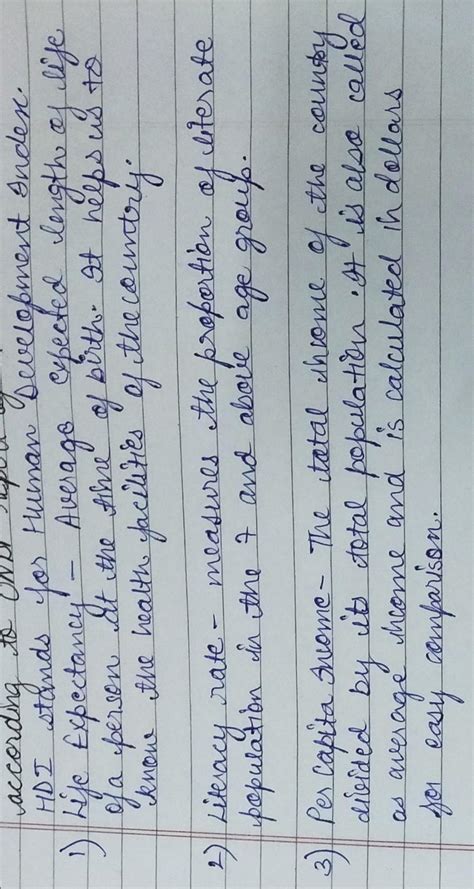 according to UNDP
HDI stands for Human Development Index.
1) Life Expectancy - Average expected length of life
of a person at the time of birth. It helps us to
know the health facilities of the country.
2) Literacy rate - measures the proportion of literate
population in the 7 and above age group.
3) Per capita Income - The total income of the country
divided by its total population. It is also called
as average income and is calculated in dollars
for easy comparison.